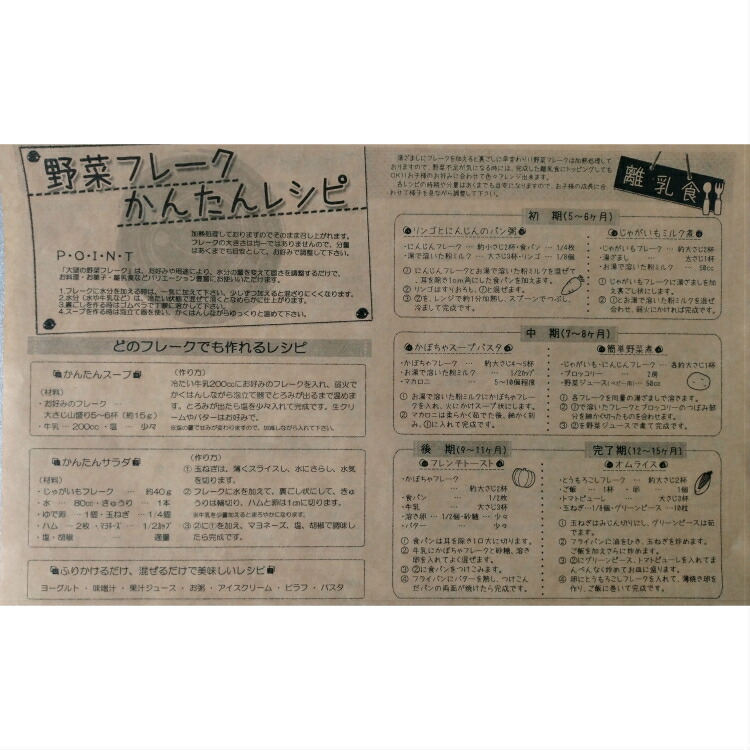 野菜フレーク
かんたんレシピ
加熱処理しておりますのでそのまま召し上がれます。
フレークの大きさは均一ではありませんので、分量
はあくまでも目安として、お好みで調整して下さい。
P・O・I・N・T
「大望の野菜フレーク」は、お好みや用途により、水分の量を変えて固さを調整するだけで、
お料理・お菓子・離乳食などバリエーション豊富にお使いいただけます。
1.フレークに水分を加える時は、一気に加えて下さい。少しずつ加えると混ざりにくくなります。
2.水分（水や牛乳など）は、冷たい状態で混ぜて頂くとなめらかに仕上がります。
3.裏ごしを作る時はゴムベラで丁寧に溶かして下さい。
4.スープを作る時は泡立て器を使い、かくはんしながらゆっくりと温めて下さい。
どのフレークでも作れるレシピ
かんたんスープ
（材料）
・お好みのフレーク …
大さじ山盛り5~6杯（約15g）
・牛乳 … 200cc ・塩 … 少々
（作り方）
冷たい牛乳200ccにお好みのフレークを入れ、弱火で
かくはんしながら泡立て器でとろみが出るまで温めま
す。とろみが出たら塩を少々入れて完成です。生クリ
ームやバターはお好みで。
※塩の量で甘みが変わりますので、加減しながら入れて下さい。
かんたんサラダ
（材料）
・じゃがいもフレーク … 約40g
・水 … 80cc・きゅうり … 1本
・ゆで卵 … 1個・玉ねぎ … 1/4個
・ハム … 2枚 ・マヨネーズ … 1/2カップ
・塩・胡椒 … 適量
（作り方）
① 玉ねぎは、薄くスライスし、水にさらし、水気
を切ります。
② フレークに水を加えて、裏ごし状にして、きゅ
うりは輪切り、ハムと卵は1cmに切ります。
※牛乳を少量加えるとまろやかになります。
③ ②に①を加え、マヨネーズ、塩、胡椒で調味し
たら完成です。
ふりかけるだけ、混ぜるだけで美味しいレシピ
ヨーグルト ・ 味噌汁 ・ 果汁ジュース ・ お粥 ・ アイスクリーム ・ ピラフ ・ パスタ
湯ざましにフレークを加えると裏ごしに早変わり!!野菜フレークは加熱処理して
おりますので、野菜不足が気になる時には、完成した離乳食にトッピングしても
OK!!お子様のお好みに合わせて色々アレンジ出来ます。
各レシピの時期や分量はあくまでも目安になりますので、お子様の成長に合
わせて様子を見ながら調整して下さい。
離乳食
初 期(5~6ヶ月)
リンゴとにんじんのパン粥
・にんじんフレーク … 約大さじ2杯・食パン … 1/4枚
・湯で溶いた粉ミルク … 大さじ3杯・リンゴ … 1/8個
① にんじんフレークとお湯で溶いた粉ミルクを混ぜて
、耳を除き1cm角にした食パンを加えます。
② リンゴはすりおろし、①と混ぜます。
③ ②を、レンジで約1分加熱し、スプーンでつぶし、
冷まして完成です。
じゃがいもミルク煮
・じゃがいもフレーク … 約大さじ2杯
・湯ざまし … 大さじ1杯
・お湯で溶いた粉ミルク … 50cc
① じゃがいもフレークに湯ざましを加
え裏ごし状にします。
② ①とお湯で溶いた粉ミルクを混ぜ
合わせ、弱火にかければ完成です。
中 期(7~8ヶ月)
かぼちゃスープパスタ
・かぼちゃフレーク … 約大さじ4~5杯
・お湯で溶いた粉ミルク … 1/2カップ
・マカロニ … 5~10個程度
① お湯で溶いた粉ミルクにかぼちゃフレー
クを入れ、火にかけスープ状にします。
② マカロニは柔らかく茹でた後、細かく刻
み、①に入れて完成です。
簡単野菜煮
・じゃがいも・にんじんフレーク … 各約大さじ1杯
・ブロッコリー … 2房
・野菜ジュース(ベビー用)… 50cc
① 各フレークを同量の湯ざましで溶きます。
② ①で溶いたフレークとブロッコリーのつぼみ部
分を細かく切ったものを合わせます。
③ ②を野菜ジュースで煮て完成です。
後 期(9~11ヶ月)
フレンチトースト
・かぼちゃフレーク
… 約大さじ2杯
・食パン … 1/2枚
・牛乳 … 大さじ3杯
・溶き卵 … 1/2個・砂糖 … 少々
・バター … 少々
① 食パンは耳を除き1口大に切ります。
② 牛乳にかぼちゃフレークと砂糖、溶き
卵を入れてよく混ぜます。
③ ②に食パンをつけこみます。
④ フライパンにバターを熱し、つけこん
だパンの両面が焼けたら完成です。
完了期(12~15ヶ月)
オムライス
・とうもろこしフレーク … 約大さじ2杯
・ご飯 … 1杯 ・卵 … 1個
・トマトピューレ … 大さじ3杯
・玉ねぎ … 1/8個・グリーンピース … 10粒
① 玉ねぎはみじん切りにし、グリーンピースは茹
でます。
② フライパンに油をひき、玉ねぎを炒めます。
ご飯を加えさらに炒めます。
③ ②にグリーンピース、トマトピューレを入れてま
んべんなく炒めてお皿に盛ります。
④ 卵にとうもろこしフレークを入れて、薄焼き卵を
作り、ご飯に巻いて完成です。